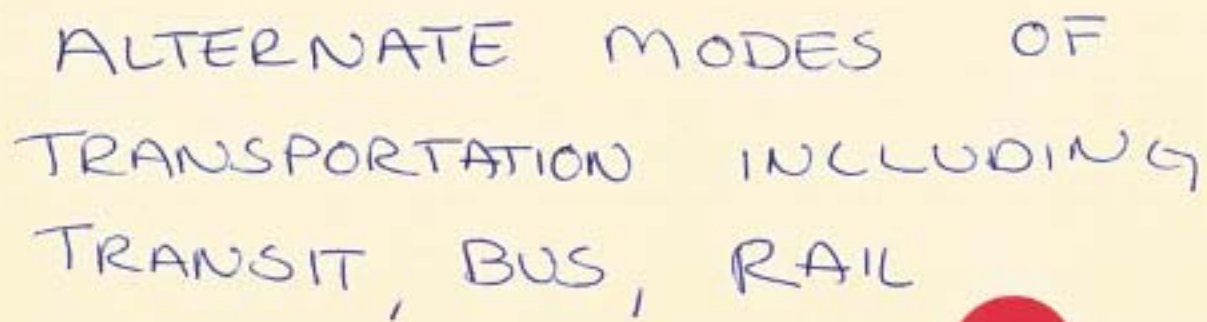 ALTERNATE MODES OF
TRANSPORTATION INCLUDING
TRANSIT, BUS, RAIL